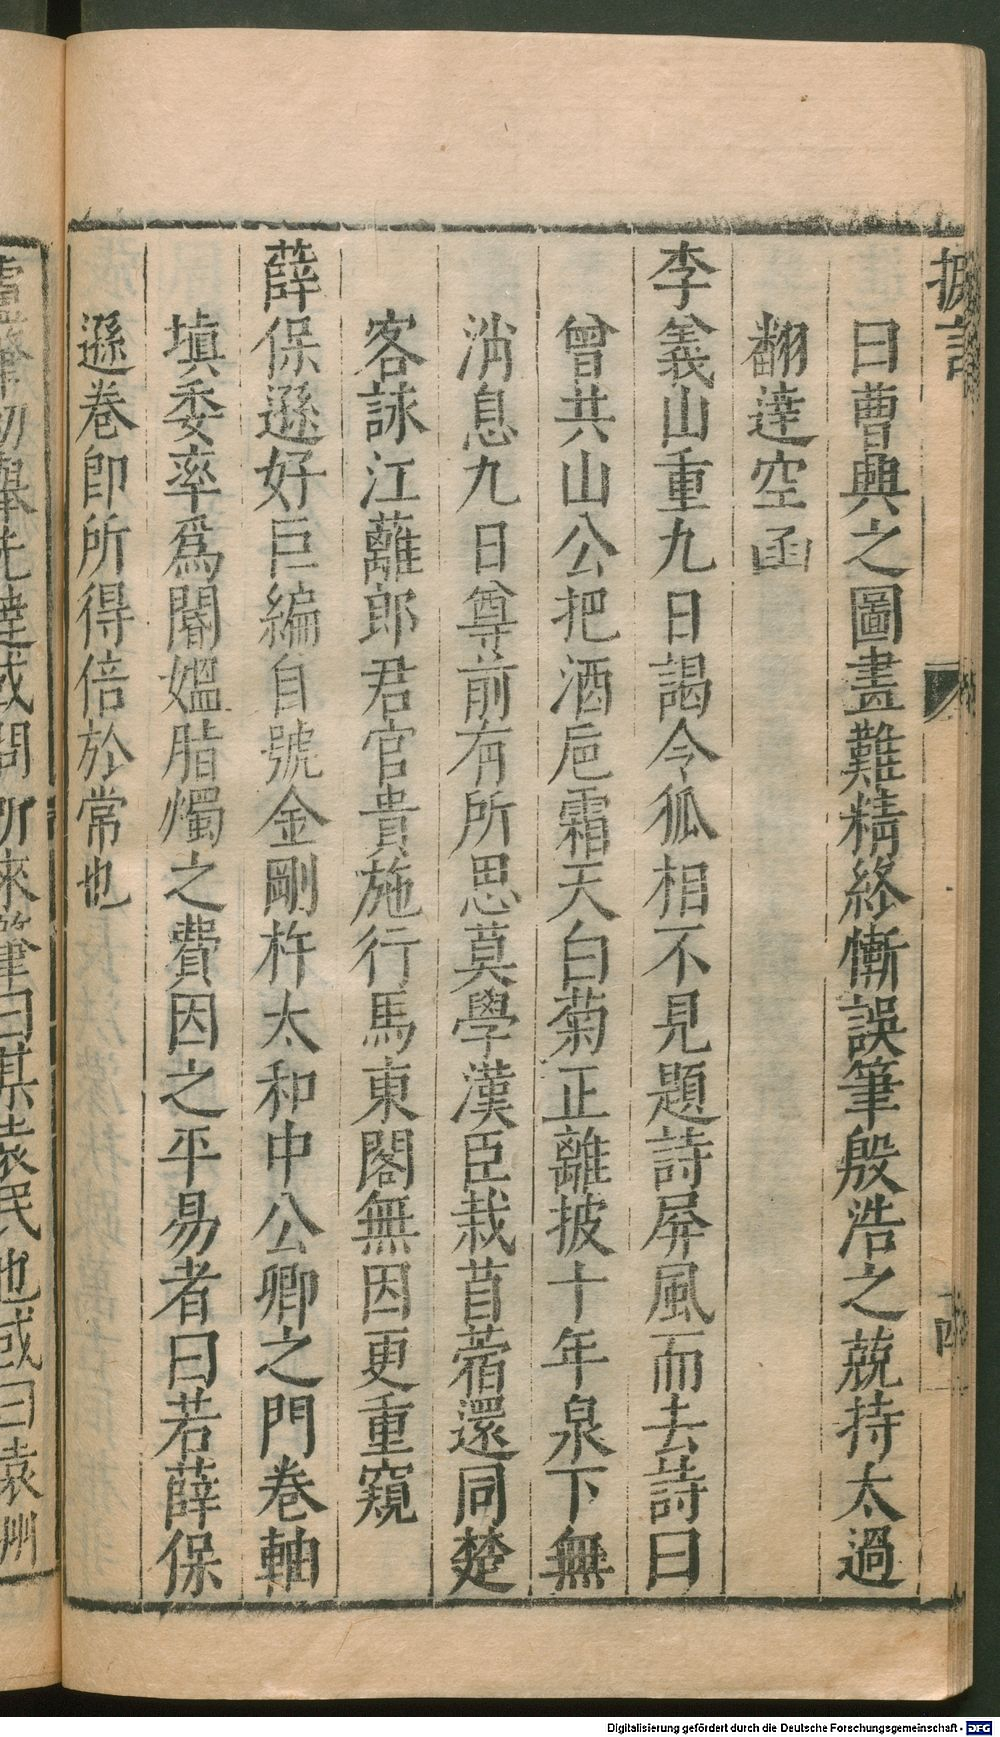 曰曹興之圖畫難精終慚誤筆殷浩之兢持太過
翻達空函
李義山重九日謁令狐相不見題詩屏風而去詩曰
曾共山公把酒巵霜天白菊正離披十年泉下無
消息九日尊前有所思莫學漢臣栽苜蓿還同楚
客詠江蘺郎君官貴施行馬東閣無因更重窺
薛保遜好巨編自號金剛杵太和中公卿之門卷軸
填委率爲閽媼脂燭之費因之平易者曰若薛保
遜卷卽所得倍於常也
盧肇初舉先達或問所來肇曰某袁民也或曰袁州
Digitalisierung gefördert durch die Deutsche Forschungsgemeinschaft - DFG